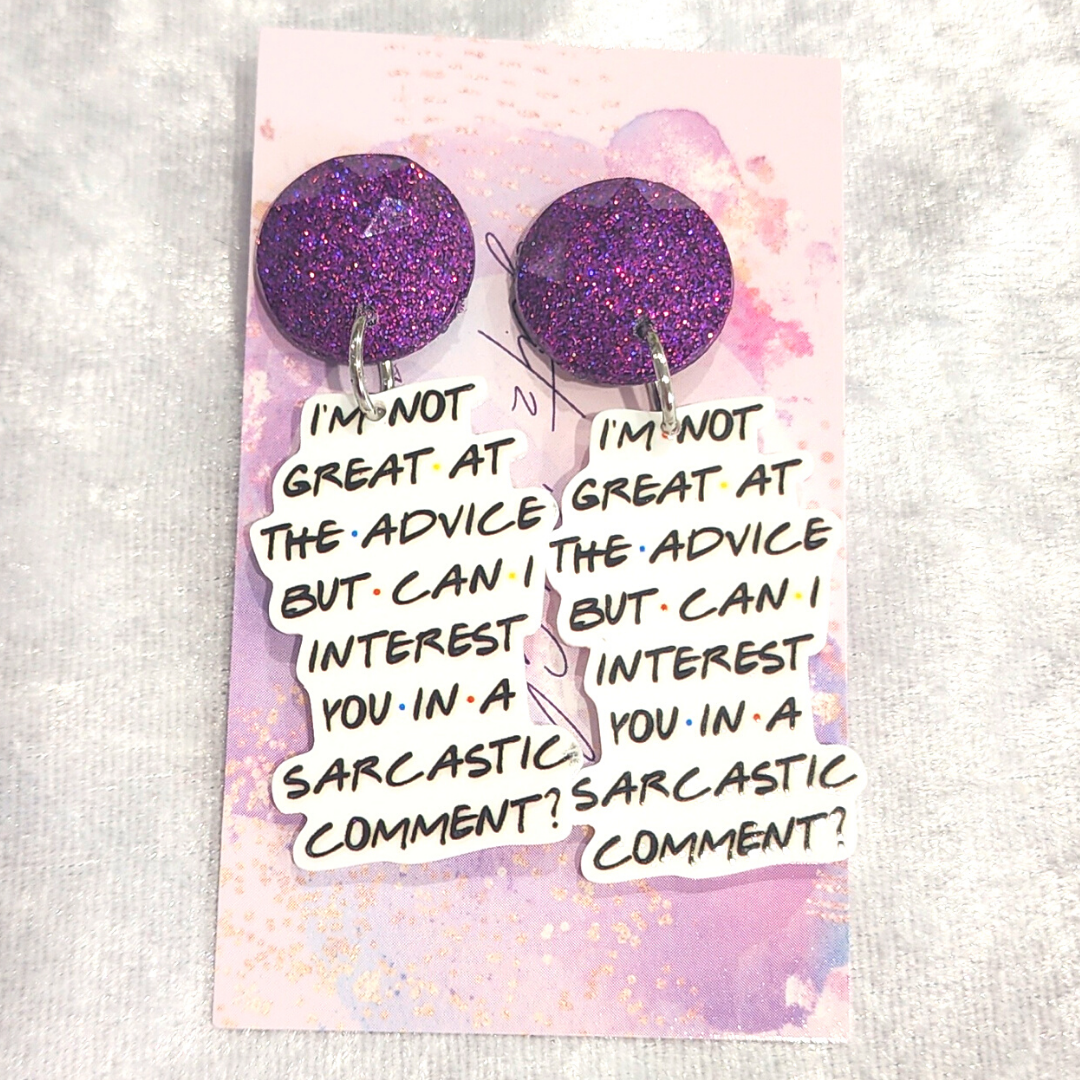 I'M•NOT
GREAT•AT
THE•ADVICE
BUT•CAN•I
INTEREST
YOU•IN•A
SARCASTIC
COMMENT?
I'M•NOT
GREAT•AT
THE•ADVICE
BUT•CAN•I
INTEREST
YOU•IN•A
SARCASTIC
COMMENT?